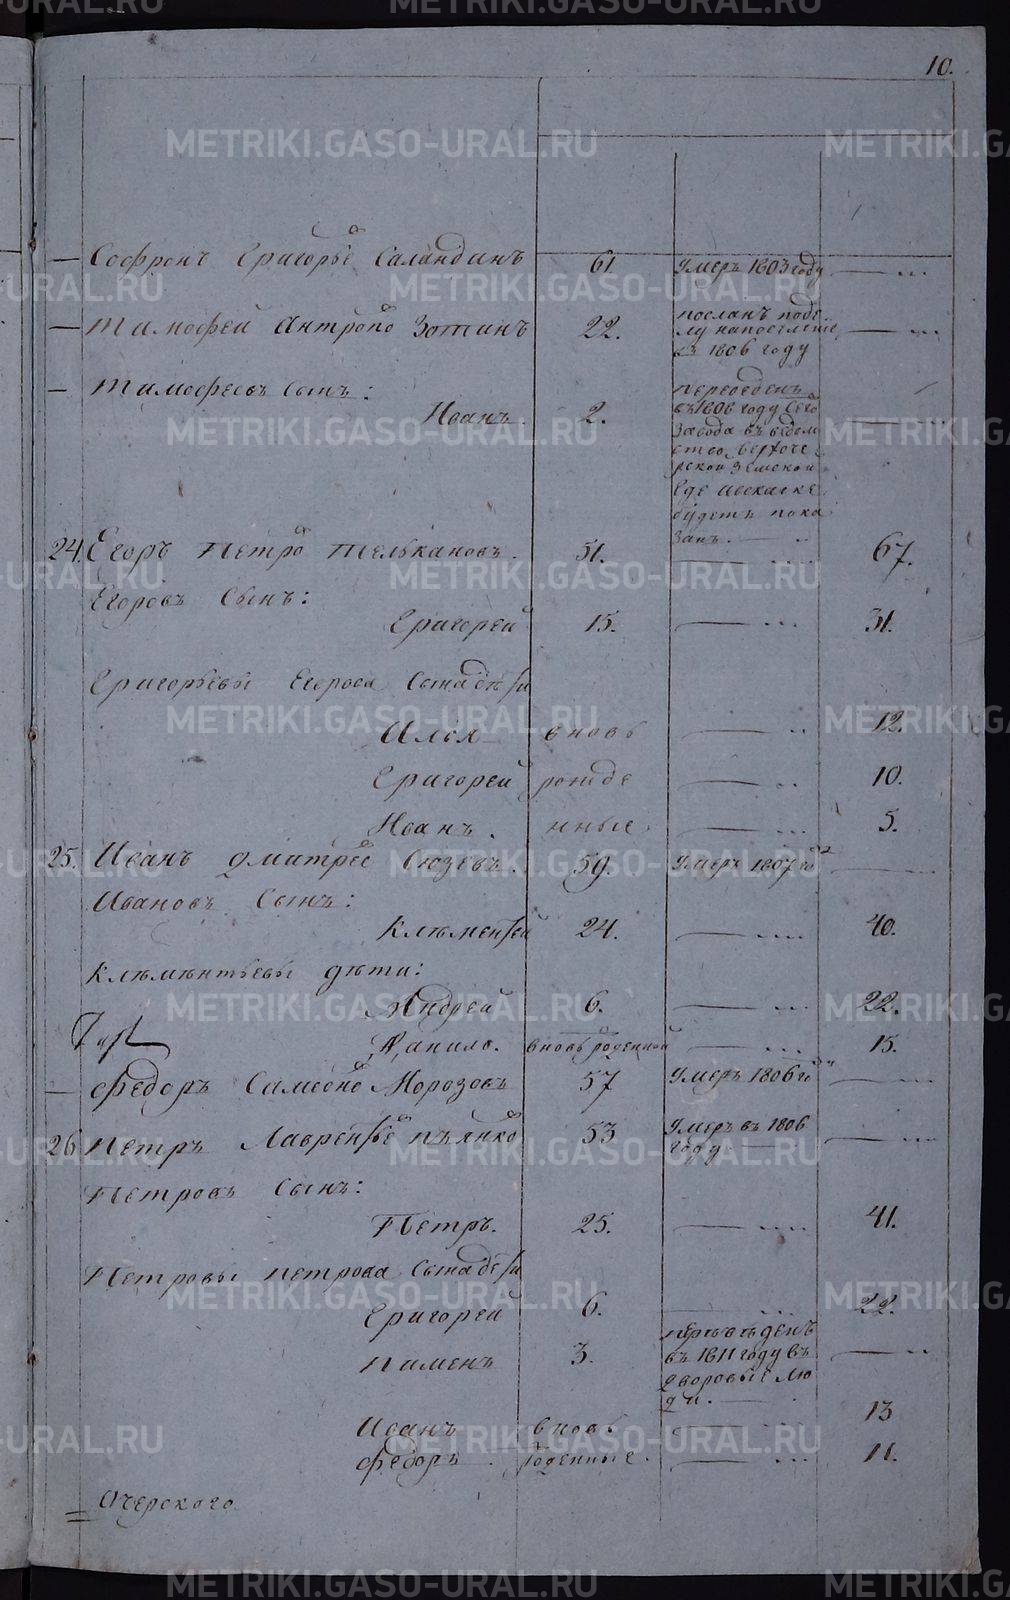 10.
— Софронъ Григорьевъ Саландинъ 61 умеръ 1803 году — ...
— Тимофей Антропо Зотинъ 22. посланъ
на поселение — ...
въ 1806 году
— Тимофеевъ сынъ:
Иванъ. 2. переведенъ
въ 1806 году сего
завода въ ведом
ство — ...
земской
где
будетъ пока
занъ. —
24. Егоръ Петро Тельканов. 51. — ... 67.
Егоровъ сынъ:
Григорей 15. — ... 31.
Григорьевы Егорова сына дети
Илья вновь — .. 12.
Григорей рожде — ... 10.
Иванъ. нные. — ... 5.
25. Иванъ Дмитрее Сюзевъ. 59. умеръ 1807 го —
Ивановъ сынъ:
Клементей 24. — .... 40.
Клементьевы дети:
Андрей 6. — ... 22.
Данило. вновь роденной — ... 15.
— Федоръ Самсоно Морозовъ 57 умеръ 1806 го — ...
26 Петръ Лаврентье Пьянко 53 умеръ въ 1806
году. — — ...
Петровъ сынъ:
Петръ. 25. — .... 41.
Петровы Петрова сына дети
Григорей 6. — ... 22.
Пименъ 3. переведенъ
въ 1811 году въ — ..
дворовые лю
ди. —
Иванъ вновь — ... 13
Федоръ. роденные. — ... 11.
= Очерского
METRIKI.GASO-URAL.RU